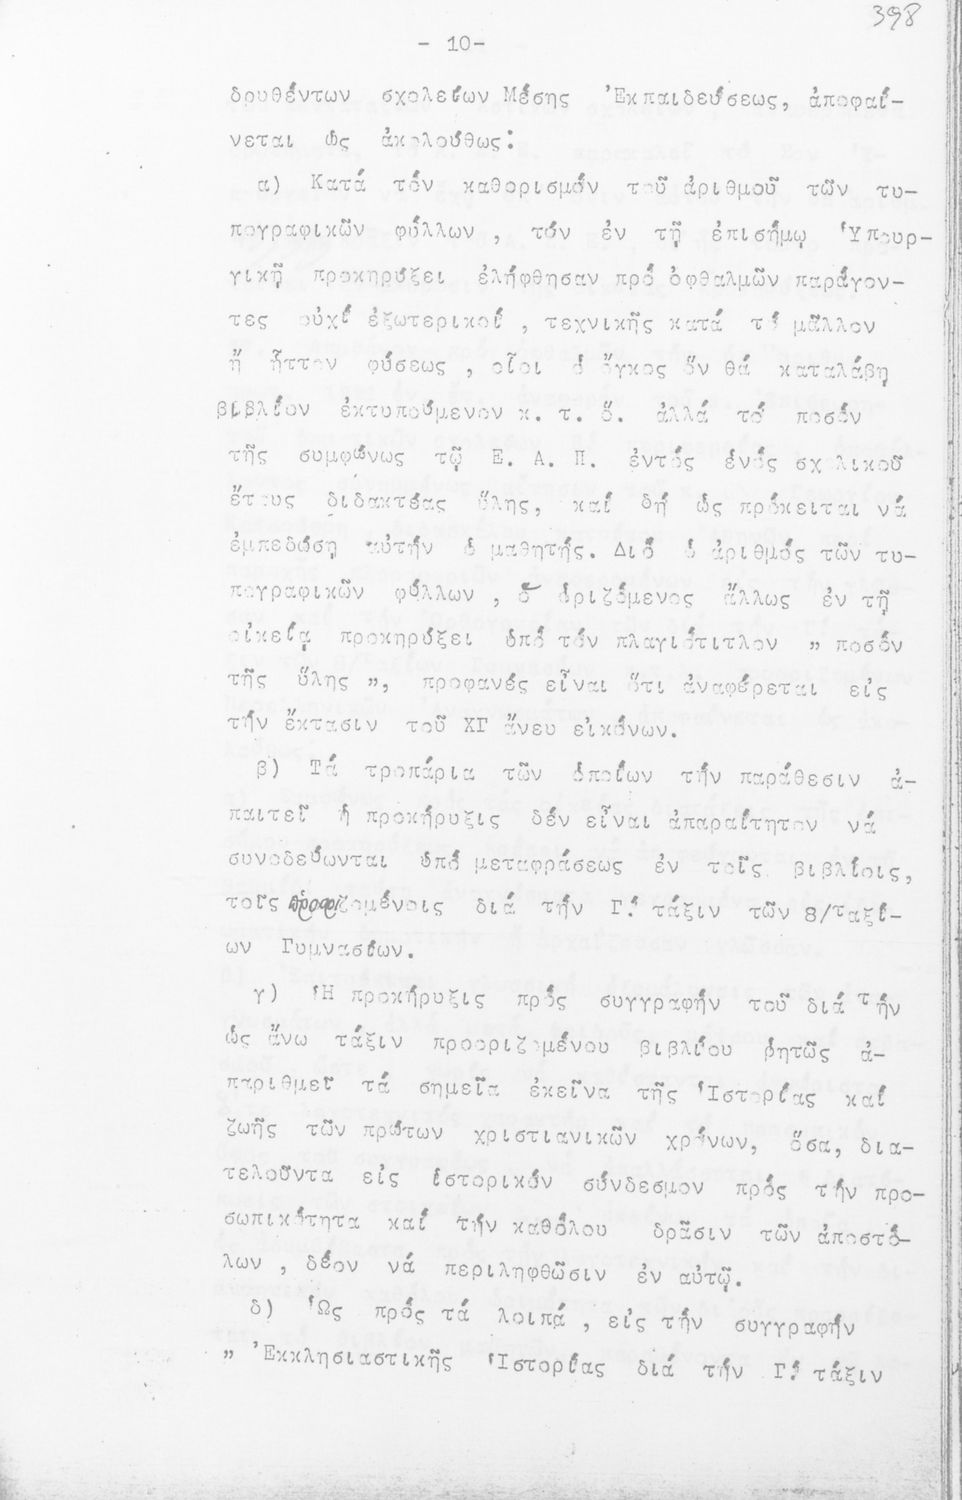 398
- 10-
δρυθέντων σχολείων Μέσης Ἐκπαιδεύσεως, ἀποφαί-
νεται ὡς ἀκολούθως:
α) Κατά τόν καθορισμόν τοῦ ἀριθμοῦ τῶν τυ-
πογραφικῶν φύλλων, τόν ἐν τῇ ἐπισήμῳ Ὑπουρ-
γικῇ προκηρύξει ἐλήφθησαν πρό ὀφθαλμῶν παράγον-
τες οὐχί ἐξωτερικοί, τεχνικῆς κατά τό μᾶλλον
ἤ ἧττον φύσεως, οἷοι ὁ ὄγκος ὅν θά καταλάβῃ
βιβλίον ἐκτυπούμενον κ. τ. ὅ. ἀλλά τό ποσόν
τῆς συμφώνως τῷ Ε. Α. Π. ἐντός ἑνός σχολικοῦ
ἔτους διδακτέας ὕλης, καί δή ὡς πρόκειται νά
ἐμπεδώσῃ αὐτήν ὁ μαθητής. Διό ὁ ἀριθμός τῶν τυ-
πογραφικῶν φύλλων, ὅ ὁριζόμενος ἄλλως ἐν τῇ
οἰκείᾳ προκηρύξει ὑπό τόν πλαγιότιτλον „ ποσόν
τῆς ὕλης „, προφανές εἶναι ὅτι ἀναφέρεται εἰς
τήν ἔκτασιν τοῦ ΧΓ ἄνευ εἰκόνων.
β) Τά τροπάρια τῶν ὁποίων τήν παράθεσιν ἀ-
παιτεῖ ἡ προκήρυξις δέν εἶναι ἀπαραίτητον νά
συνοδεύωνται ὑπό μεταφράσεως ἐν τοῖς βιβλίοις,
τοῖς προοριζομένοις διά τήν Γ΄ τάξιν τῶν 8/ταξί-
ων Γυμνασίων.
γ) Ἡ προκήρυξις πρός συγγραφήν τοῦ διά τήν
ὡς ἄνω τάξιν προοριζομένου βιβλίου ῥητῶς ἀ-
παριθμεῖ τά σημεῖα ἐκεῖνα τῆς Ἱστορίας καί
ζωῆς τῶν πρώτων χριστιανικῶν χρόνων, ὅσα, δια-
τελοῦντα εἰς ἱστορικόν σύνδεσμον πρός τήν προ-
σωπικότητα καί τήν καθόλου δρᾶσιν τῶν ἀποστό-
λων, δέον νά περιληφθῶσιν ἐν αὐτῷ.
δ) Ὡς πρός τά λοιπά, εἰς τήν συγγραφήν
„ Ἐκκλησιαστικῆς Ἱστορίας διά τήν Γ΄ τάξιν